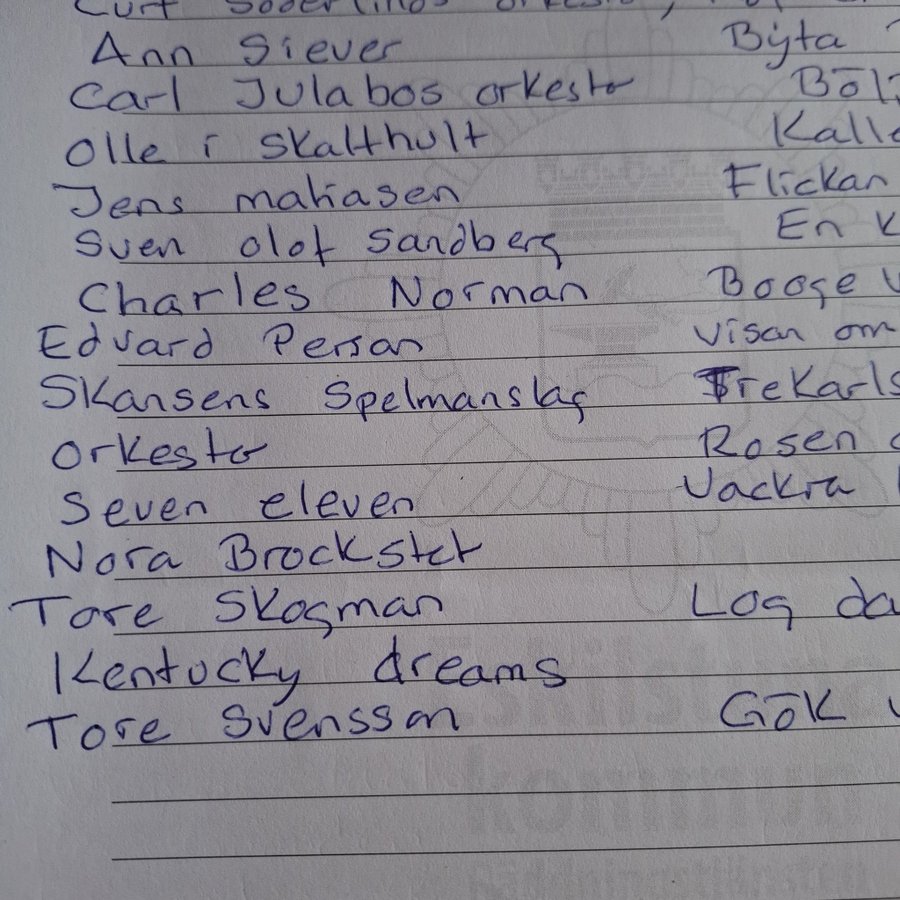 Curt Söderlinds orkester,
Ann Siever Byta
Carl Julabos orkester Böl
Olle i skalthult Kalle
Jens maliasen Flickan
Sven olof Sandberg En K
Charles Norman Booge
Edvard Person visan om
Skansens Spelmanslag Trekarls
orkester Rosen
Seven eleven Vackra
Nora Brockstet
Tore Skogman Log da
Kentucky dreams
Tore Svensson Gök